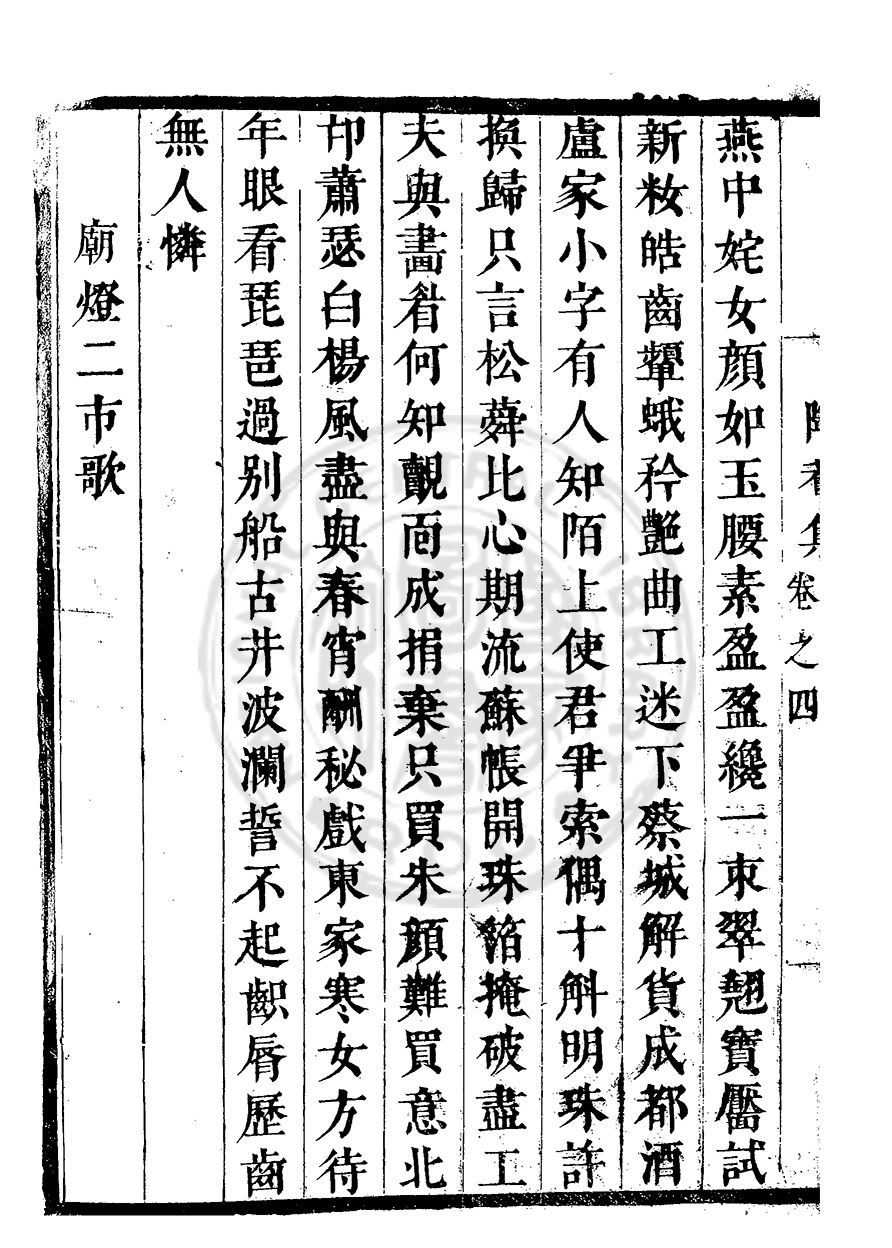 卷之四
燕中姹女顔如玉腰素盈盈纔一束翠翹寶靨試
新籹皓齒顰蛾矜艶曲工迷下蔡城解貨成都酒
盧家小字有人知陌上使君爭索偶十斛明珠許
換歸只言松蕣比心期流蘇帳開珠箔掩破盡工
夫與畫眉何知覿面成捐棄只買朱顔難買意北
邙蕭瑟白楊風盡與春宵酬秘戲東家寒女方待
年眼看琵琶過别船古井波瀾誓不起齞脣歷齒
無人憐
廟燈二市歌